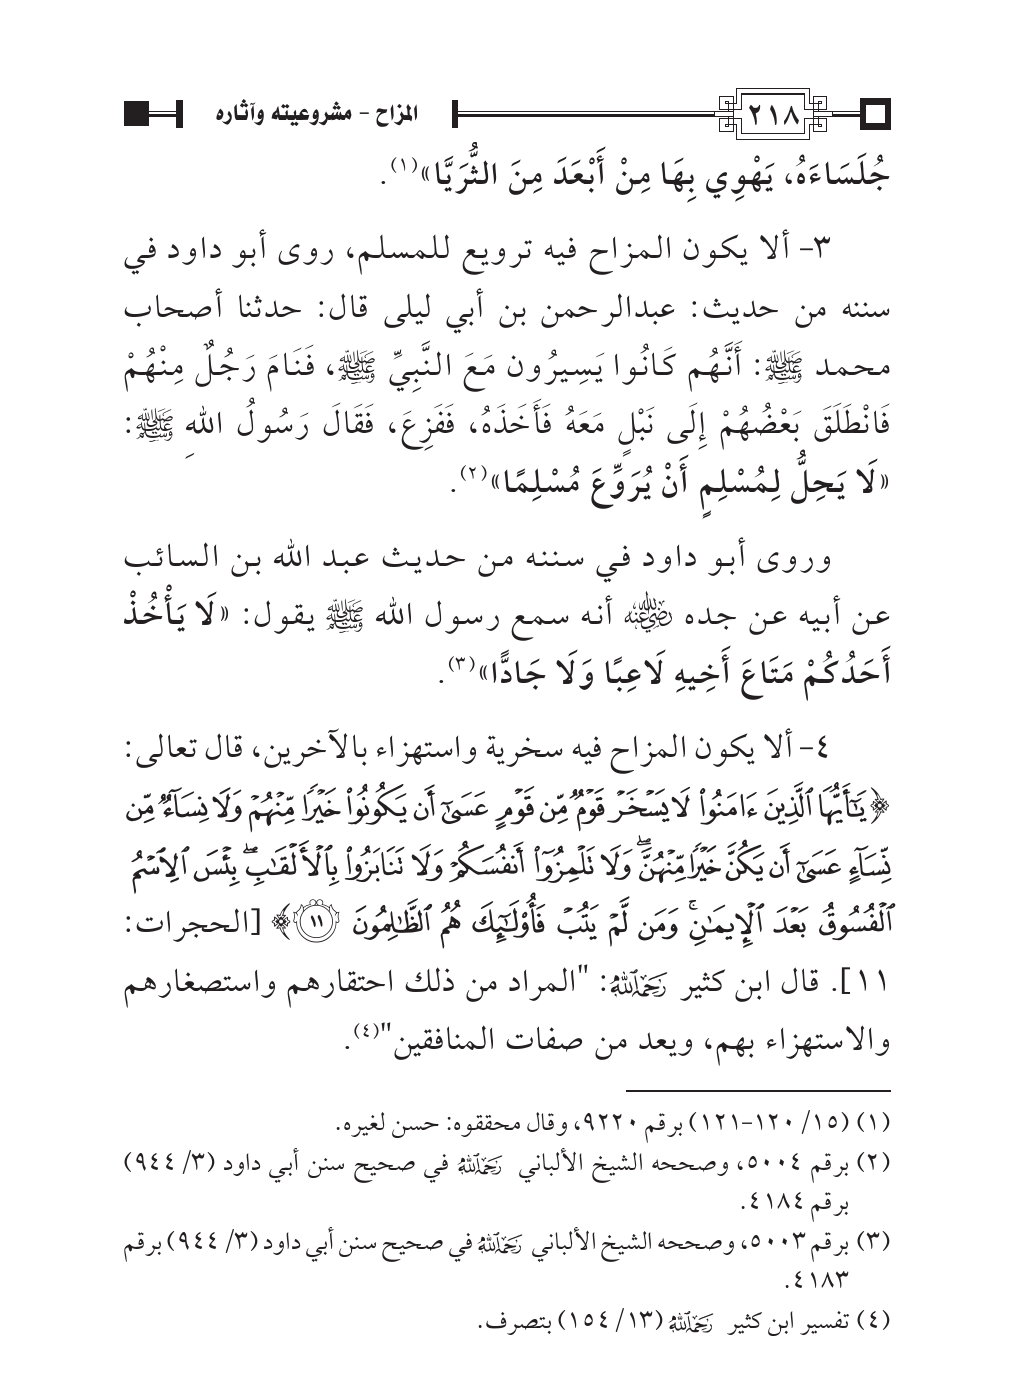 ٢١٨ المزاح – مشروعيته وآثاره
جُلَسَاءَهُ، يَهْوِي بِهَا مِنْ أَبْعَدَ مِنَ الثُّرَيَّا»(١).
٣- ألا يكون المزاح فيه ترويع للمسلم، روى أبو داود في
سننه من حديث: عبدالرحمن بن أبي ليلى قال: حدثنا أصحاب
محمد ﷺ: أَنَّهُم كَانُوا يَسِيرُون مَعَ النَّبِيِّ ﷺ، فَنَامَ رَجُلٌ مِنْهُمْ
فَانْطَلَقَ بَعْضُهُمْ إِلَى نَبْلٍ مَعَهُ فَأَخَذَهُ، فَفَزِعَ، فَقَالَ رَسُولُ اللهِ ﷺ:
«لَا يَحِلُّ لِمُسْلِمٍ أَنْ يُرَوِّعَ مُسْلِمًا»(٢).
وروى أبو داود في سننه من حديث عبد الله بن السائب
عن أبيه عن جده رضي الله عنه أنه سمع رسول الله ﷺ يقول: «لَا يَأْخُذْ
أَحَدُكُمْ مَتَاعَ أَخِيهِ لَاعِبًا وَلَا جَادًّا»(٣).
٤- ألا يكون المزاح فيه سخرية واستهزاء بالآخرين، قال تعالى:
﴿يَٰٓأَيُّهَا ٱلَّذِينَ ءَامَنُوا۟ لَا يَسْخَرْ قَوْمٌ مِّن قَوْمٍ عَسَىٰٓ أَن يَكُونُوا۟ خَيْرًا مِّنْهُمْ وَلَا نِسَآءٌ مِّن
نِّسَآءٍ عَسَىٰٓ أَن يَكُنَّ خَيْرًا مِّنْهُنَّ ۖ وَلَا تَلْمِزُوٓا۟ أَنفُسَكُمْ وَلَا تَنَابَزُوا۟ بِٱلْأَلْقَٰبِ ۖ بِئْسَ ٱلِٱسْمُ
ٱلْفُسُوقُ بَعْدَ ٱلْإِيمَٰنِ ۚ وَمَن لَّمْ يَتُبْ فَأُو۟لَٰٓئِكَ هُمُ ٱلظَّٰلِمُونَ ١١﴾ [الحجرات:
١١]. قال ابن كثير رحمه الله: "المراد من ذلك احتقارهم واستصغارهم
والاستهزاء بهم، ويعد من صفات المنافقين"(٤).
(١) (١٥/ ١٢٠-١٢١) برقم ٩٢٢٠، وقال محققوه: حسن لغيره.
(٢) برقم ٥٠٠٤، وصححه الشيخ الألباني رحمه الله في صحيح سنن أبي داود (٣/ ٩٤٤)
برقم ٤١٨٤.
(٣) برقم ٥٠٠٣، وصححه الشيخ الألباني رحمه الله في صحيح سنن أبي داود (٣/ ٩٤٤) برقم
٤١٨٣.
(٤) تفسير ابن كثير رحمه الله (١٣/ ١٥٤) بتصرف.